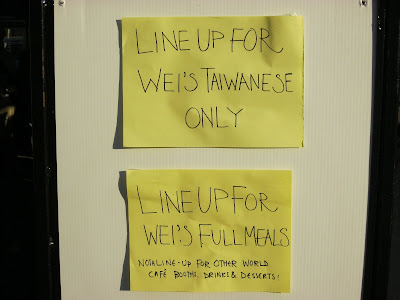 LINE UP FOR
WEI'S TAIWANESE
ONLY
LINE UP FOR
WEI'S FULL MEALS
NOT A LINE-UP FOR OTHER WORLD
CAFÉ BOOTHS, DRINKS & DESSERTS!